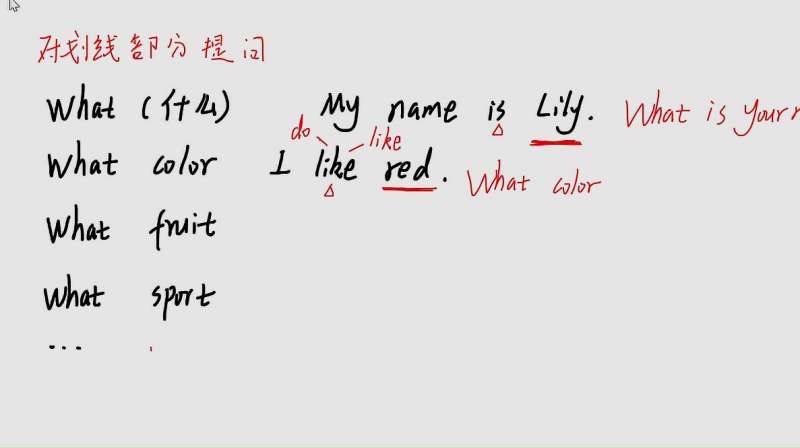 对划线部分提问
What (什么) My name is Lily. What is your
do like
What color I like red. What color
What fruit
What sport
...